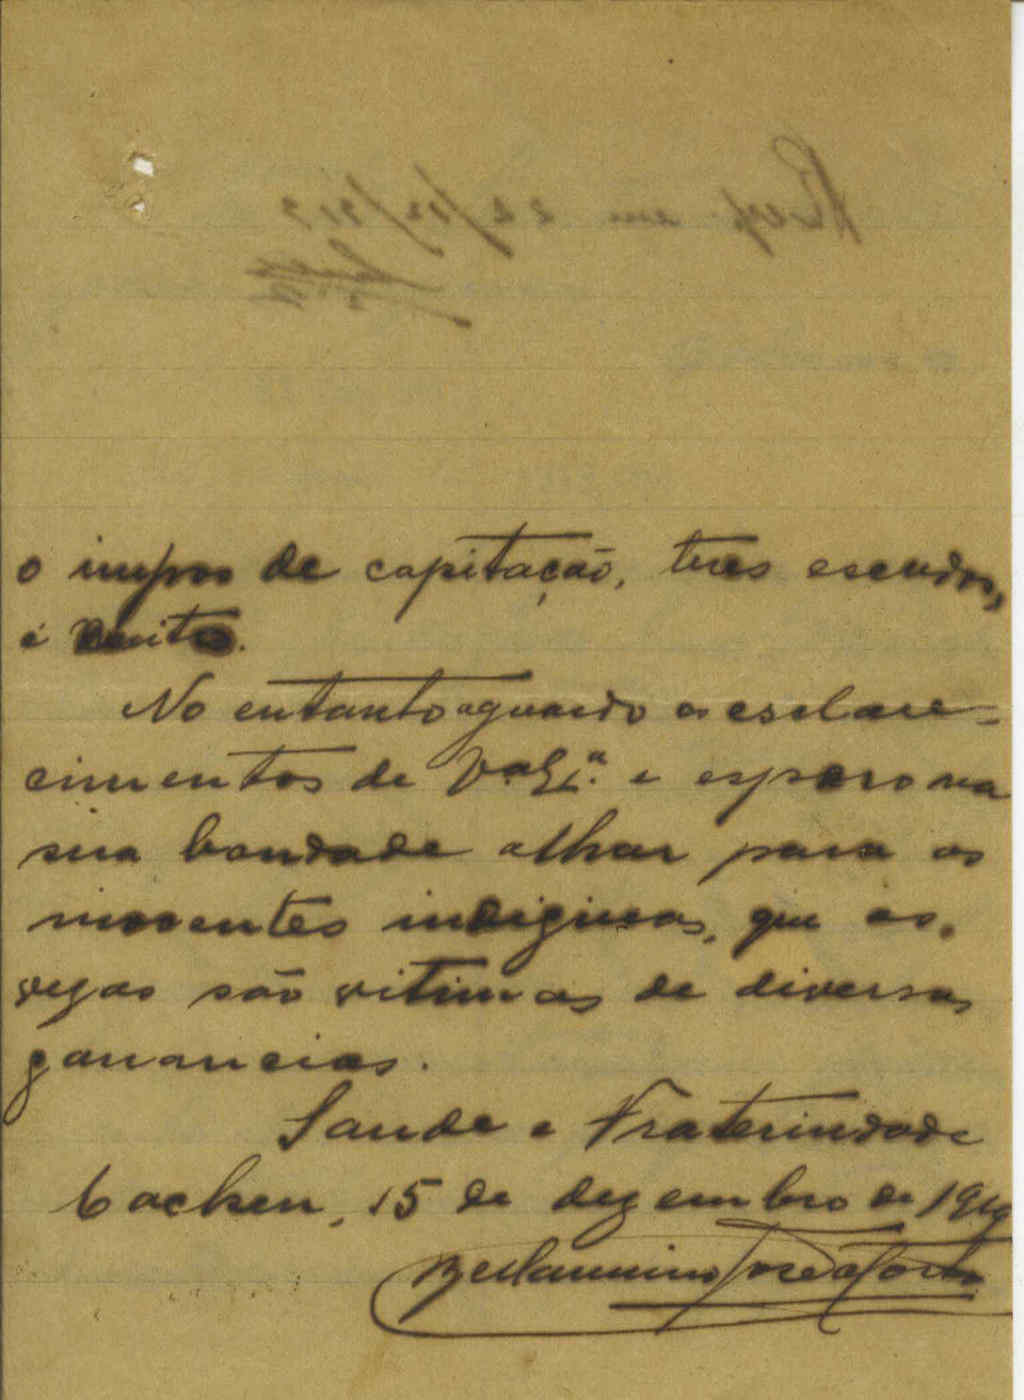 o impos de capitação, tres escudos,
é muito.
No entanto aguardo os esclare-
cimentos de V. Ex.ª e espero na
sua bondade olhar para os
inocentes indiginas, que ás,
vezes são vitimas de diversas
ganancias.
Saude e Fraternidade
Cacheu, 15 de dezembro de 1919
José da Costa